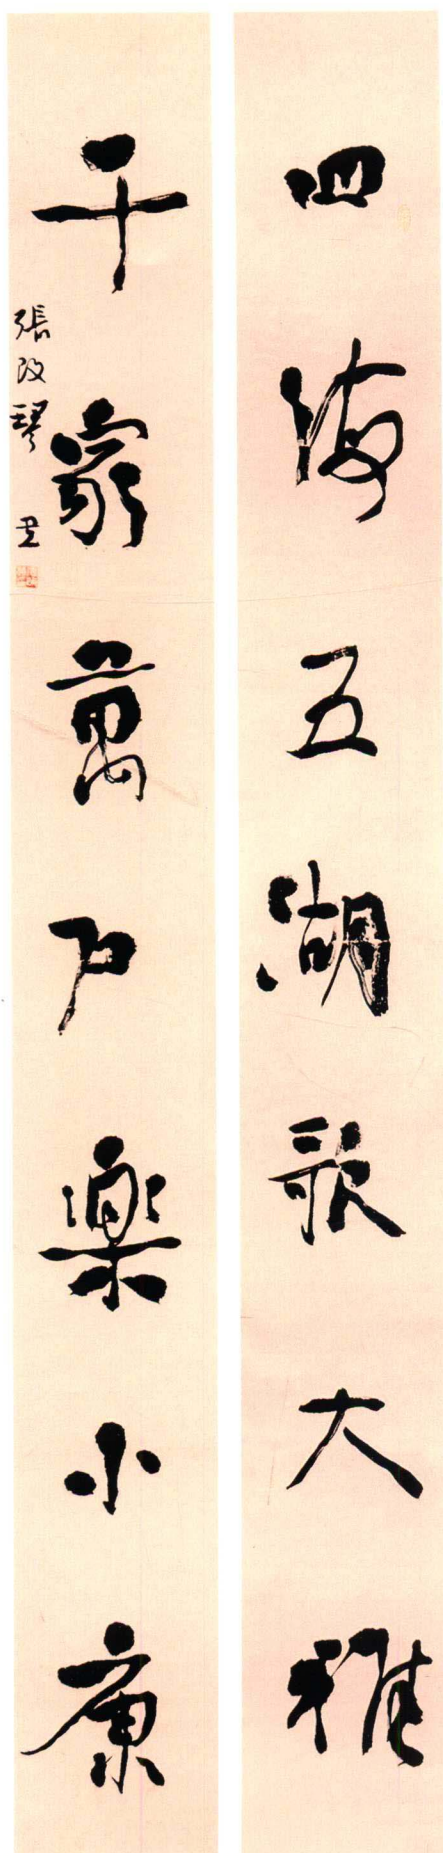 四海五湖歌大雅
千家萬戶樂小康
張改琴書